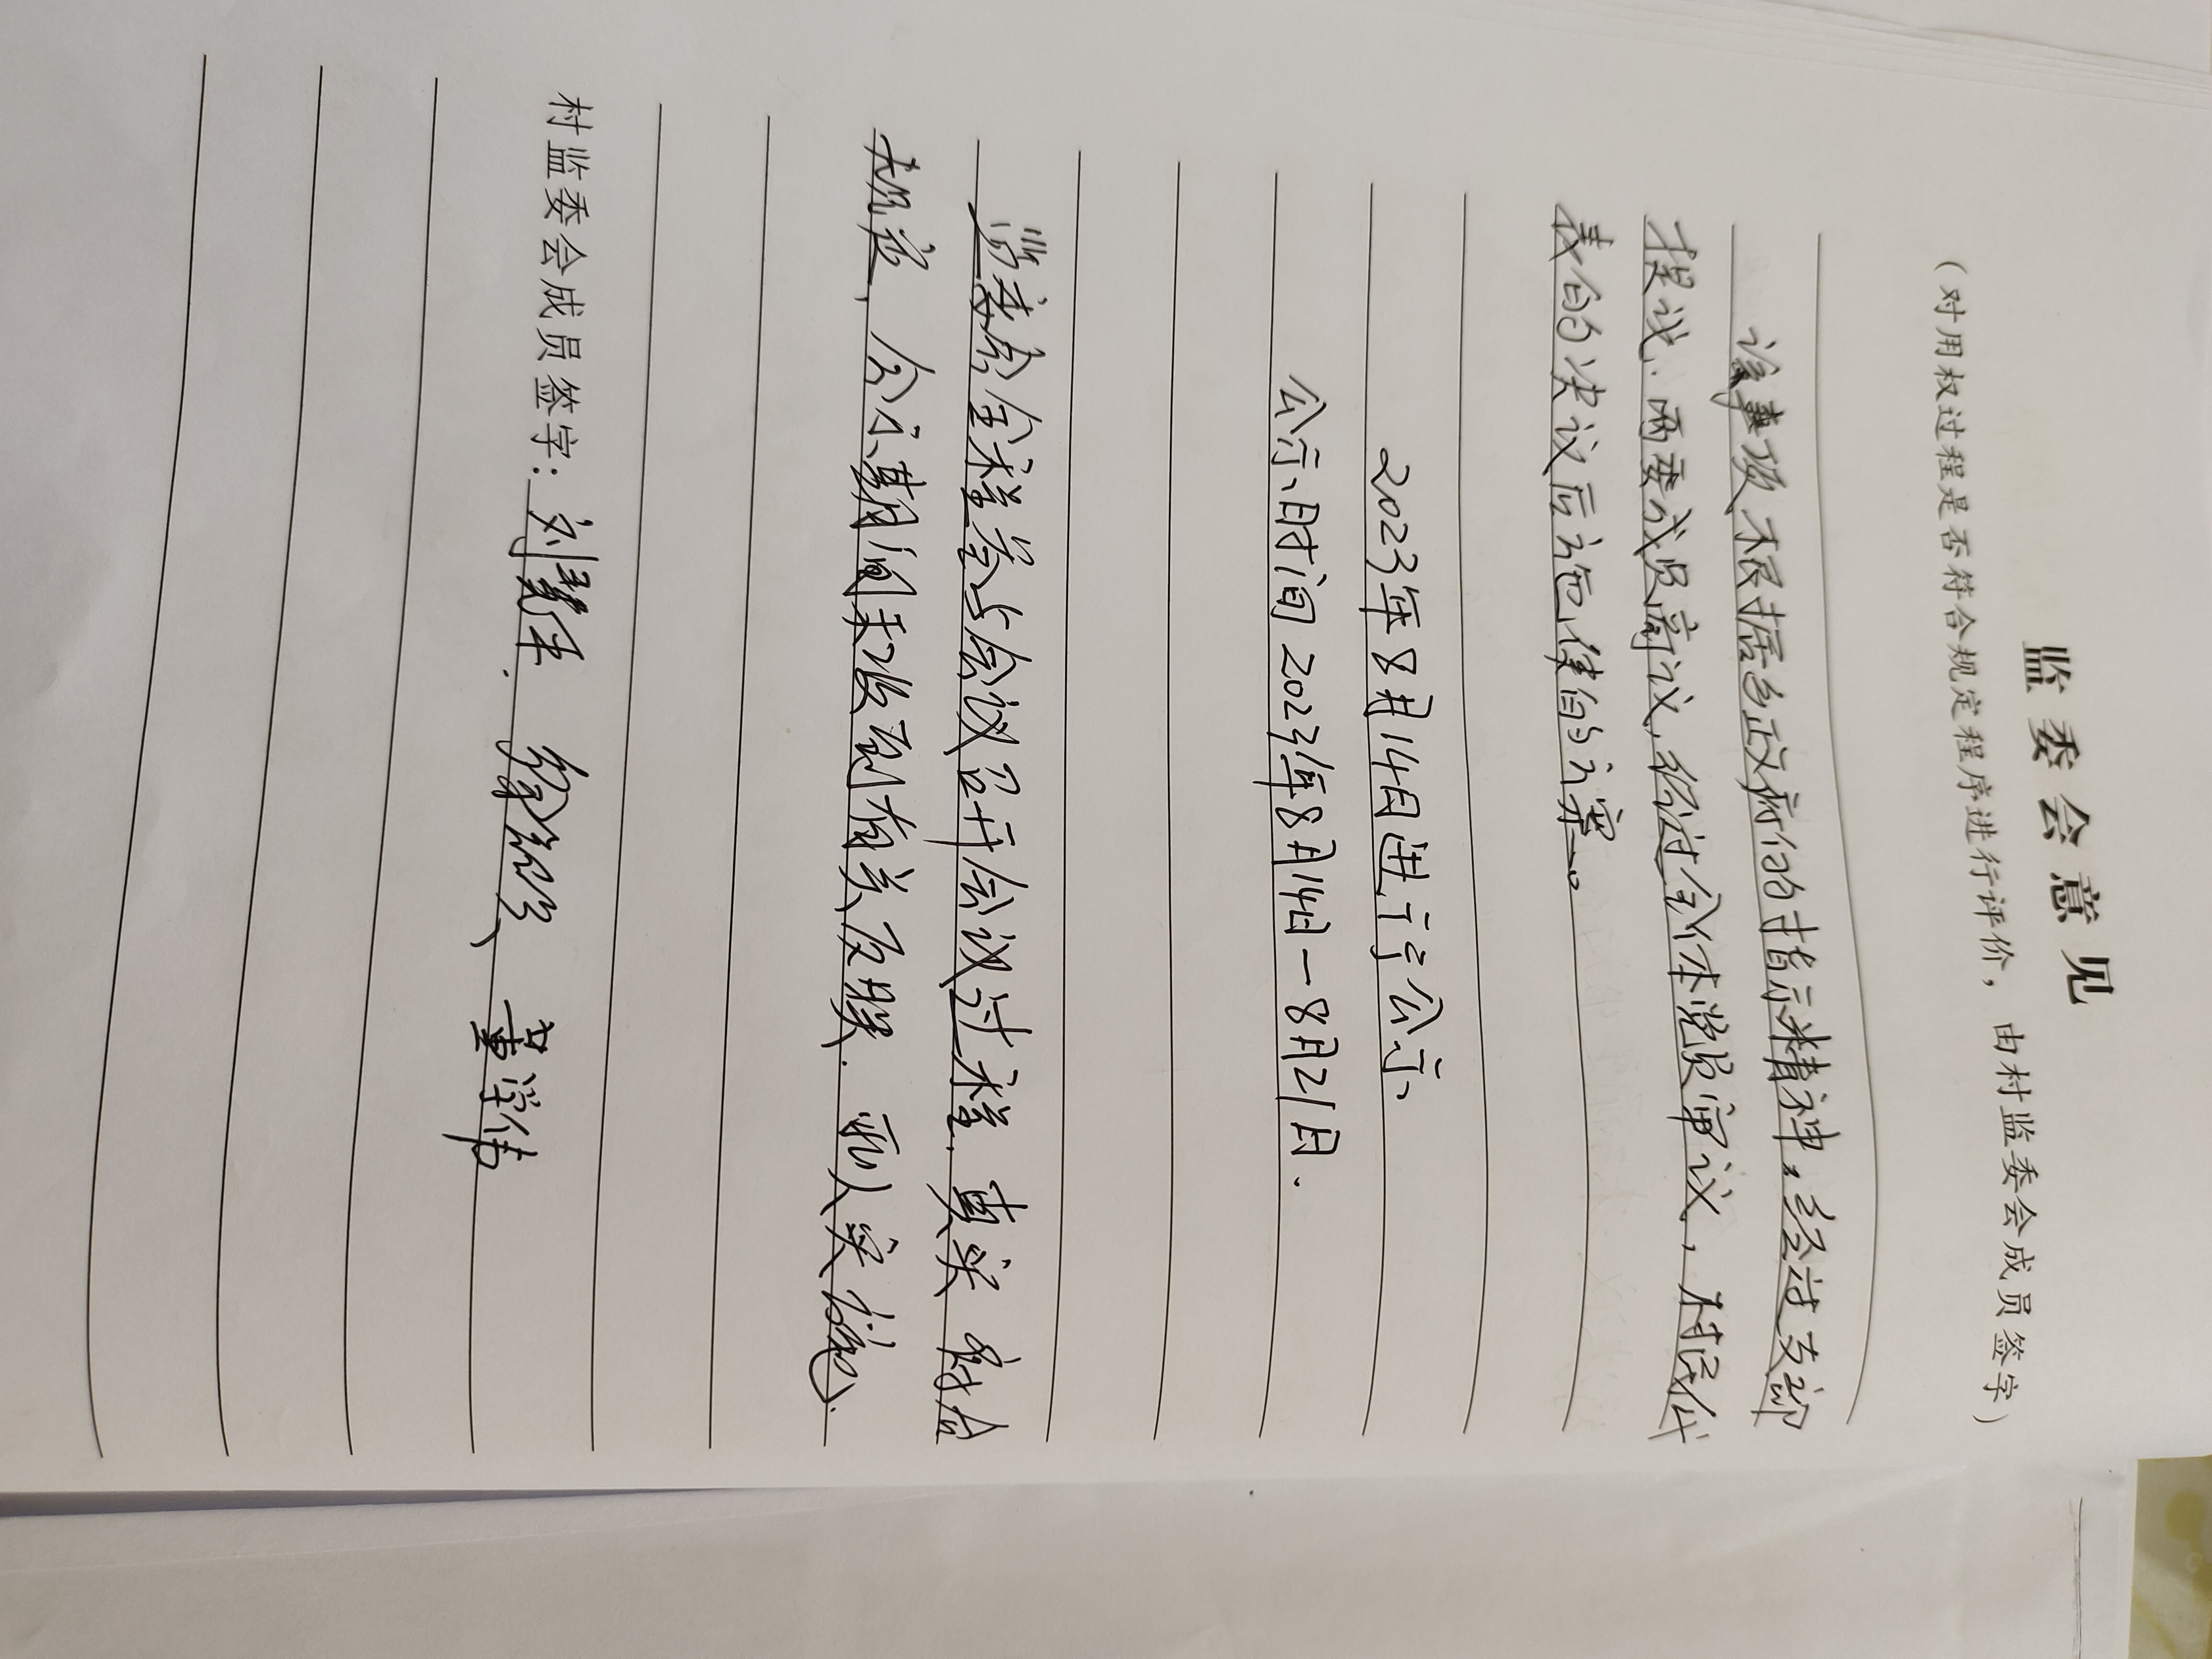 监委会意见
（对用权过程是否符合规定程序进行评价，由村监委会成员签字）
该事项根据乡政府的指示精神，经过支部
提议、两委成员商议，经过全体党员审议，村民代
表的决议后施使的方案。
2023年8月14日进行公示
公示时间2023年8月14日—8月21日.
监委会全程参与会议召开会议过程.真实 符合
规定，公示期间未收到有关反映.可以实施.
村监委会成员签字：刘慧平. 徐 、董学伟